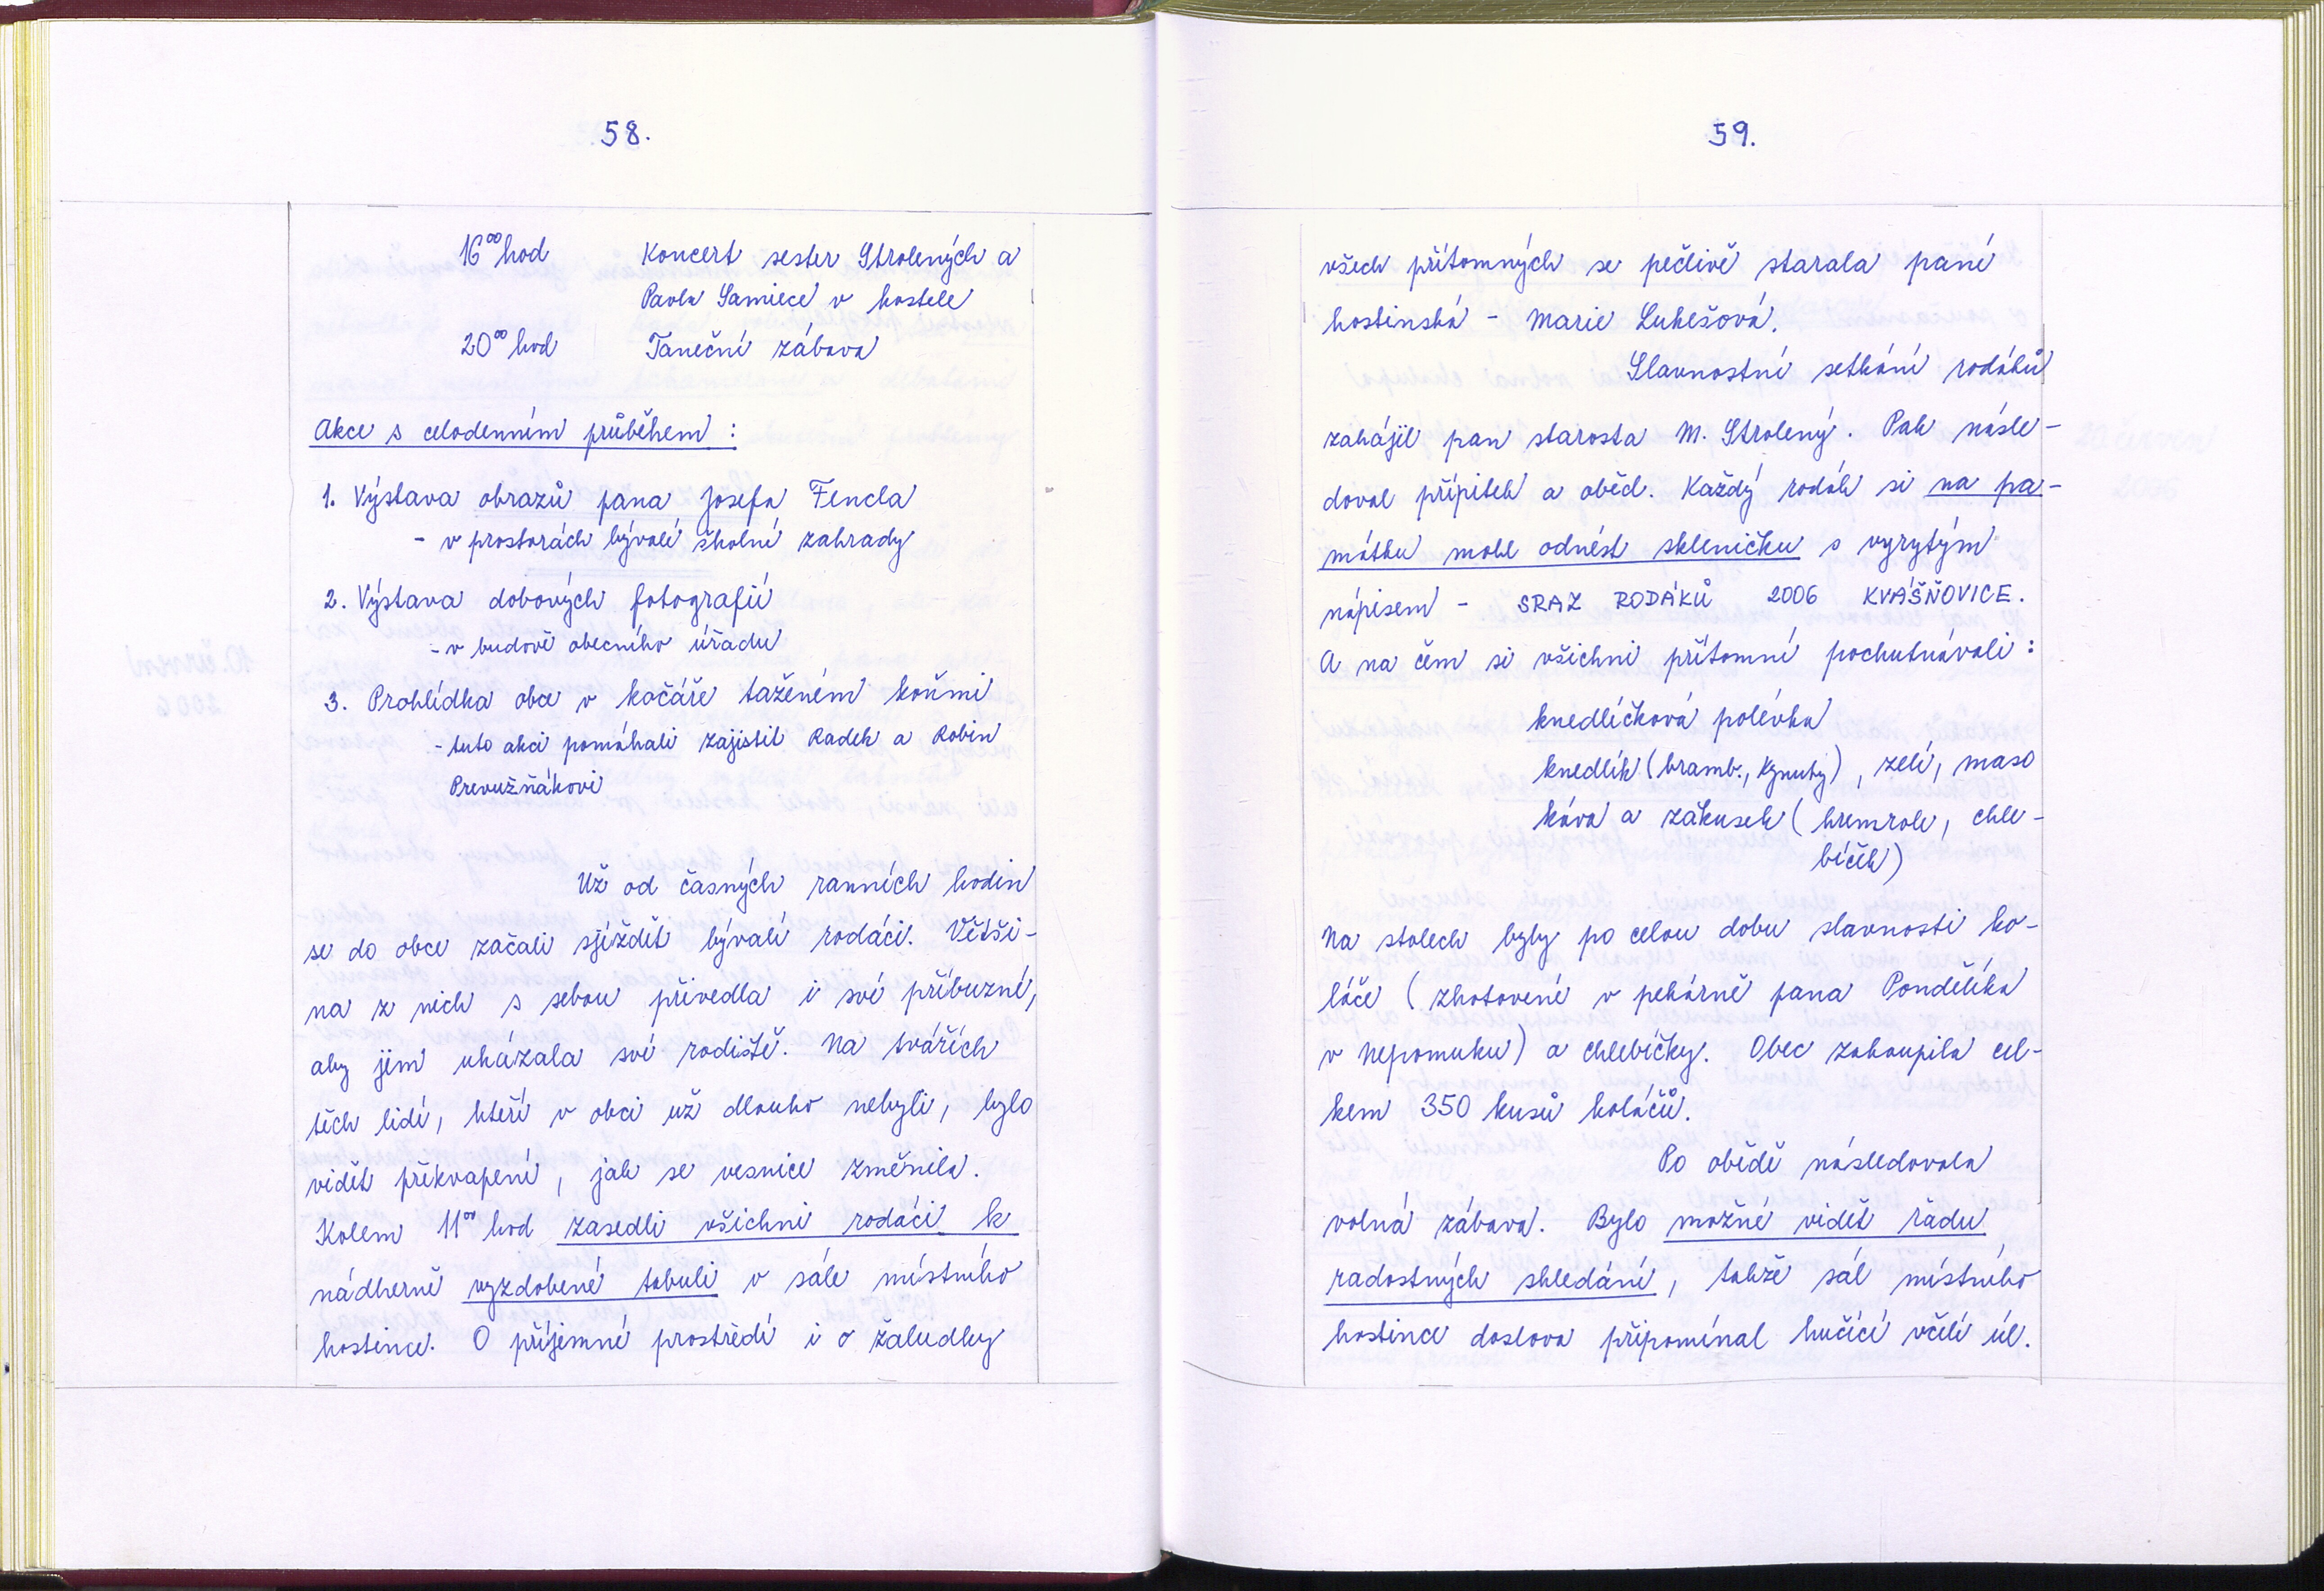 58.
16⁰⁰ hod Koncert sester Strolených a
Pavla Samiece v kostele
20⁰⁰ hod Taneční zábava
Akce s celodenním průběhem :
1. Výstava obrazů pana Josefa Fencla
- v prostorách bývalé školní zahrady
2. Výstava dobových fotografií
- v budově obecního úřadu
3. Prohlídka obce v kočáře taženém koňmi
- tuto akci pomáhali zajistit Radek a Robin
Prevužňákovi
Už od časných ranních hodin
se do obce začali sjíždět bývalí rodáci. Větši-
na z nich s sebou přivedla i své příbuzné,
aby jim ukázala své rodiště. Na tvářích
těch lidí, kteří v obci už dlouho nebyli, bylo
vidět překvapení, jak se vesnice změnila.
Kolem 11⁰⁰ hod zasedli všichni rodáci k
nádherně vyzdobené tabuli v sále místního
hostince. O příjemné prostředí i o žaludky
59.
všech přítomných se pečlivě starala paní
hostinská - Marie Lukešová.
Slavnostní setkání rodáků
zahájil pan starosta M. Strolený. Pak násle-
doval přípitek a oběd. Každý rodák si na pa-
mátku mohl odnést skleničku s vyrytým
nápisem - SRAZ RODÁKŮ 2006 KVÁŠŇOVICE.
A na čem si všichni přítomní pochutnávali :
knedlíčková polévka
knedlík (bramb., kynutý), zelí, maso
káva a zákusek ( kremrole, chle-
bíček)
Na stolech byly po celou dobu slavnosti ko-
láče ( zhotovené v pekárně pana Pondělíka
v Nepomuku) a chlebíčky. Obec zakoupila cel-
kem 350 kusů koláčů.
Po obědě následovala
volná zábava. Bylo možné vidět řadu
radostných shledání, takže sál místního
hostince doslova připomínal hučící včelí úl.